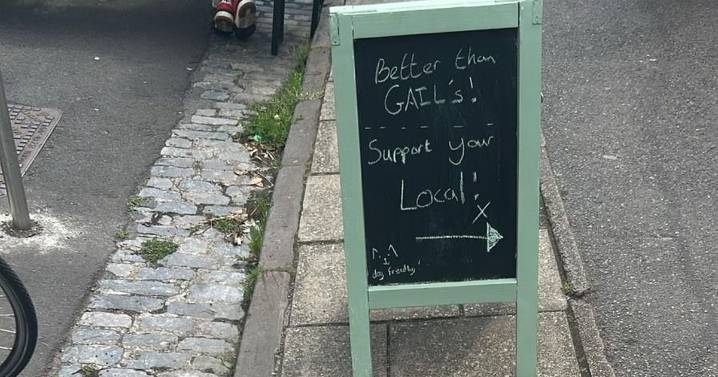 Better than
GAIL's!
Support your
Local!
X
dog friendly